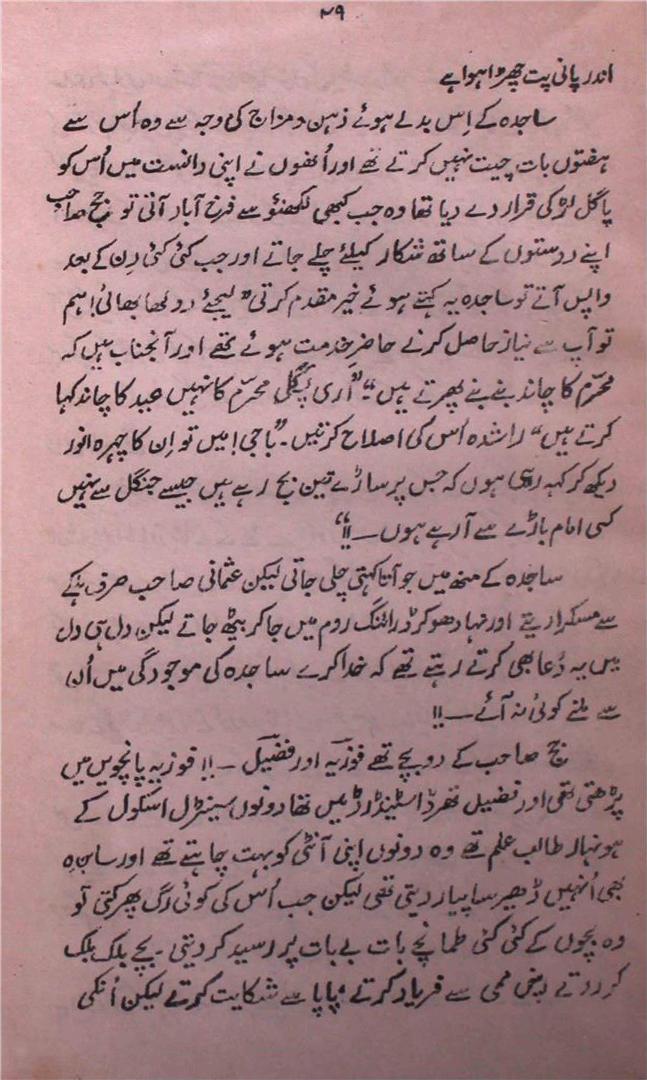 ۲۹
اندر پانی پت چھڑا ہوا ہے
ساجدہ کے اِس بدلے ہوئے ذہن و مزاج کی وجہ سے وہ اُس سے
ہفتوں بات چیت نہیں کرتے تھے اور اُنھوں نے اپنی دانست میں اُس کو
پاگل لڑکی قرار دے دیا تھا وہ جب کبھی لکھنؤ سے فرخ آباد آتی تو جج صاحب
اپنے دوستوں کے ساتھ شکار کیلئے چلے جاتے اور جب کئی کئی دن کے بعد
واپس آتے تو ساجدہ یہ کہتے ہوئے خیر مقدم کرتی "لیجئے دولھا بھائی! ہم
تو آپ سے نیاز حاصل کرنے حاضرِ خدمت ہوئے تھے اور آنجناب ہیں کہ
محرّم کا چاند بنے بنے پھرتے ہیں"۔ "اَری پگلی محرّم کا نہیں عید کا چاند کہا
کرتے ہیں" راشدہ اُس کی اصلاح کرتیں۔ "باجی! میں تو اِن کا چہرہ انور
دیکھ کر کہہ رہی ہوں کہ جس پر ساڑے تین بج رہے ہیں جیسے جنگل سے نہیں
کسی امام باڑے سے آرہے ہوں ـــ!!"
ساجدہ کے منھ میں جو آتا کہتی چلی جاتی لیکن عثمانی صاحب صرف ہلکے
سے مسکرا دیتے اور نہا دھو کر ڈرائنگ روم میں جا کر بیٹھ جاتے لیکن دل ہی دل
میں یہ دُعا بھی کرتے رہتے تھے کہ خدا کرے ساجدہ کی موجودگی میں اُن
سے ملنے کوئی نہ آئے ـــ!!
جج صاحب کے دو بچے تھے فوزیہ اور فضیل ـــ!! فوزیہ پانچویں میں
پڑھتی تھی اور فضیل تھرڈ اسٹینڈرڈ میں تھا دونوں سینٹرل اسکول کے
ہونہار طالب علم تھے وہ دونوں اپنی آنٹی کو بہت چاہتے تھے اور ساجدہ
بھی اُنہیں ڈھیر سا پیار دیتی تھی لیکن جب اُس کی کوئی رگ پھڑکتی تو
وہ بچوں کے کئی کئی طمانچے بات بے بات پر رسید کر دیتی۔ بچے بلک بلک
کر روتے ممی سے فریاد کرتے پاپا سے شکایت کرتے لیکن اُنکی